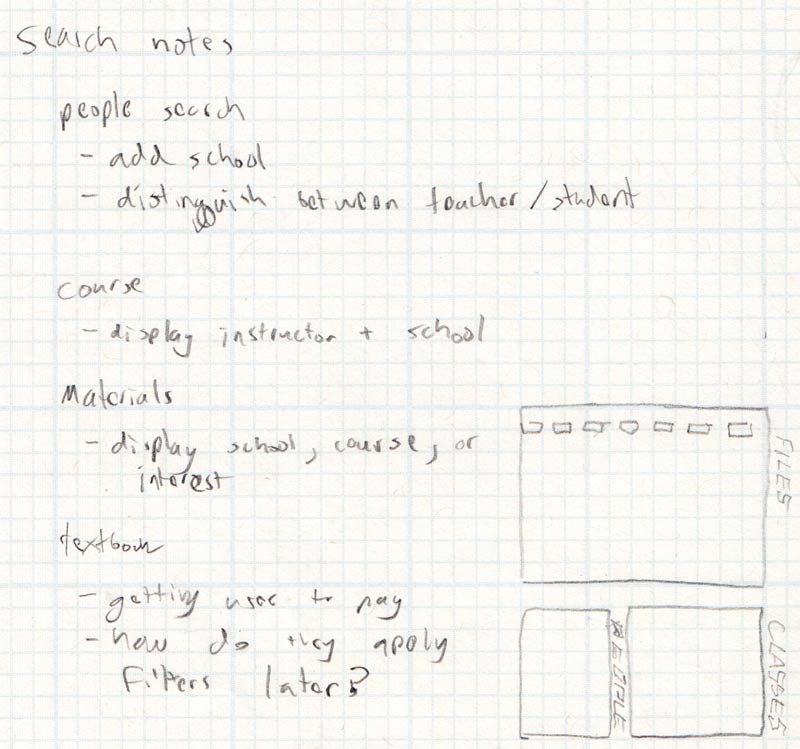 Search notes
people search
- add school
- distinguish between teacher/student
course
- display instructor + school
Materials
- display school, course, or
interest
textbook
- getting user to pay
- how do they apply
filters later?
FILES
PEOPLE
CLASSES